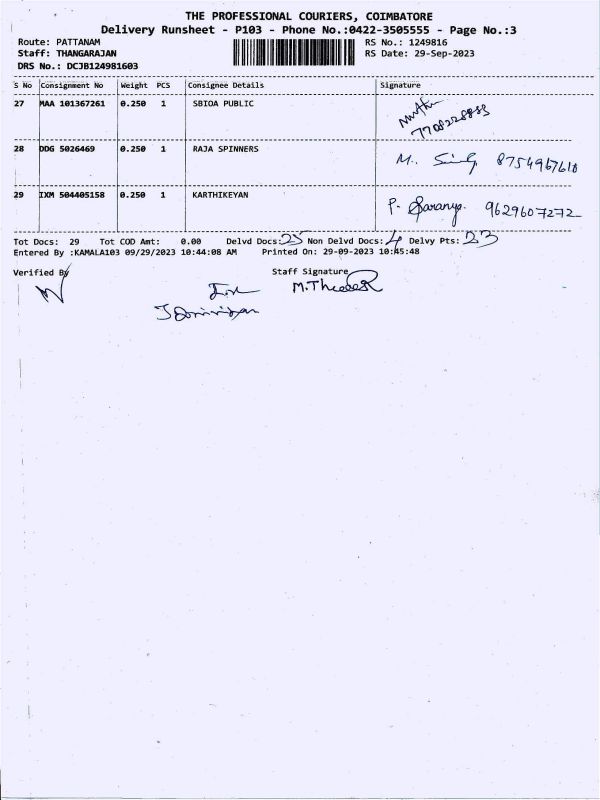 THE PROFESSIONAL COURIERS, COIMBATORE
Delivery Runsheet - P103 - Phone No.:0422-3505555 - Page No.:3
Route: PATTANAM RS No.: 1249816
Staff: THANGARAJAN RS Date: 29-Sep-2023
DRS No.: DCJB124981603
S No Consignment No Weight PCS Consignee Details Signature
27 MAA 101367261 0.250 1 SBIOA PUBLIC
28 DDG 5026469 0.250 1 RAJA SPINNERS M. 8754967610
29 IXM 504405158 0.250 1 KARTHIKEYAN P. Saranya. 9629607272
Tot Docs: 29 Tot COD Amt: 0.00 Delvd Docs: 25 Non Delvd Docs: 4 Delvy Pts: 23
Entered By :KAMALA103 09/29/2023 10:44:08 AM Printed On: 29-09-2023 10:45:48
Verified By Staff Signature